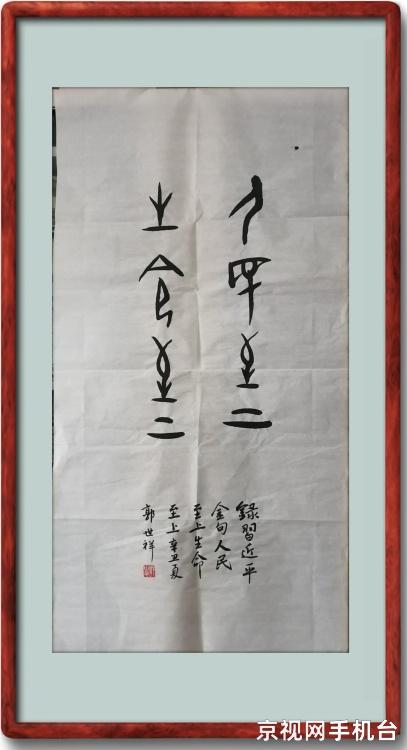 人民至上
生命至上
錄習近平
金句人民
至上生命
至上辛丑夏
郭世祥
京视网手机台